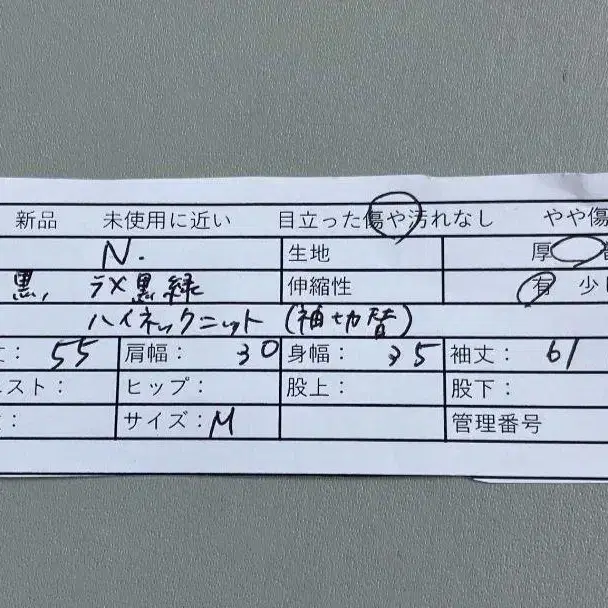 新品 未使用に近い 目立った傷や汚れなし やや傷
N. 生地 厚
黒, ラメ黒緑 伸縮性 有 少し
ハイネックニット (袖切替)
丈: 55 肩幅: 30 身幅: 35 袖丈: 61
エスト: ヒップ: 股上: 股下:
: サイズ: M 管理番号